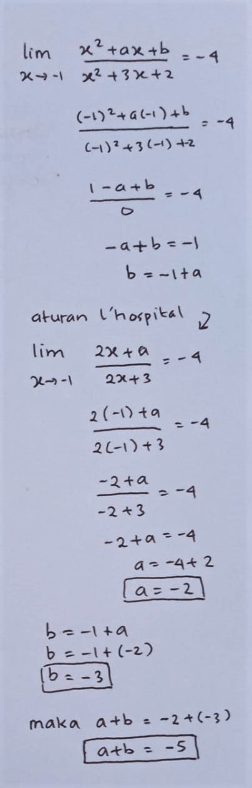 lim x²+ax+b = -4
x→-1 x²+3x+2
(-1)²+a(-1)+b = -4
(-1)²+3(-1)+2
1-a+b = -4
0
-a+b = -1
b = -1+a
aturan l'hospital
lim 2x+a = -4
x→-1 2x+3
2(-1)+a = -4
2(-1)+3
-2+a = -4
-2+3
-2+a = -4
a = -4+2
a = -2
b = -1+a
b = -1+(-2)
b = -3
maka a+b = -2+(-3)
a+b = -5